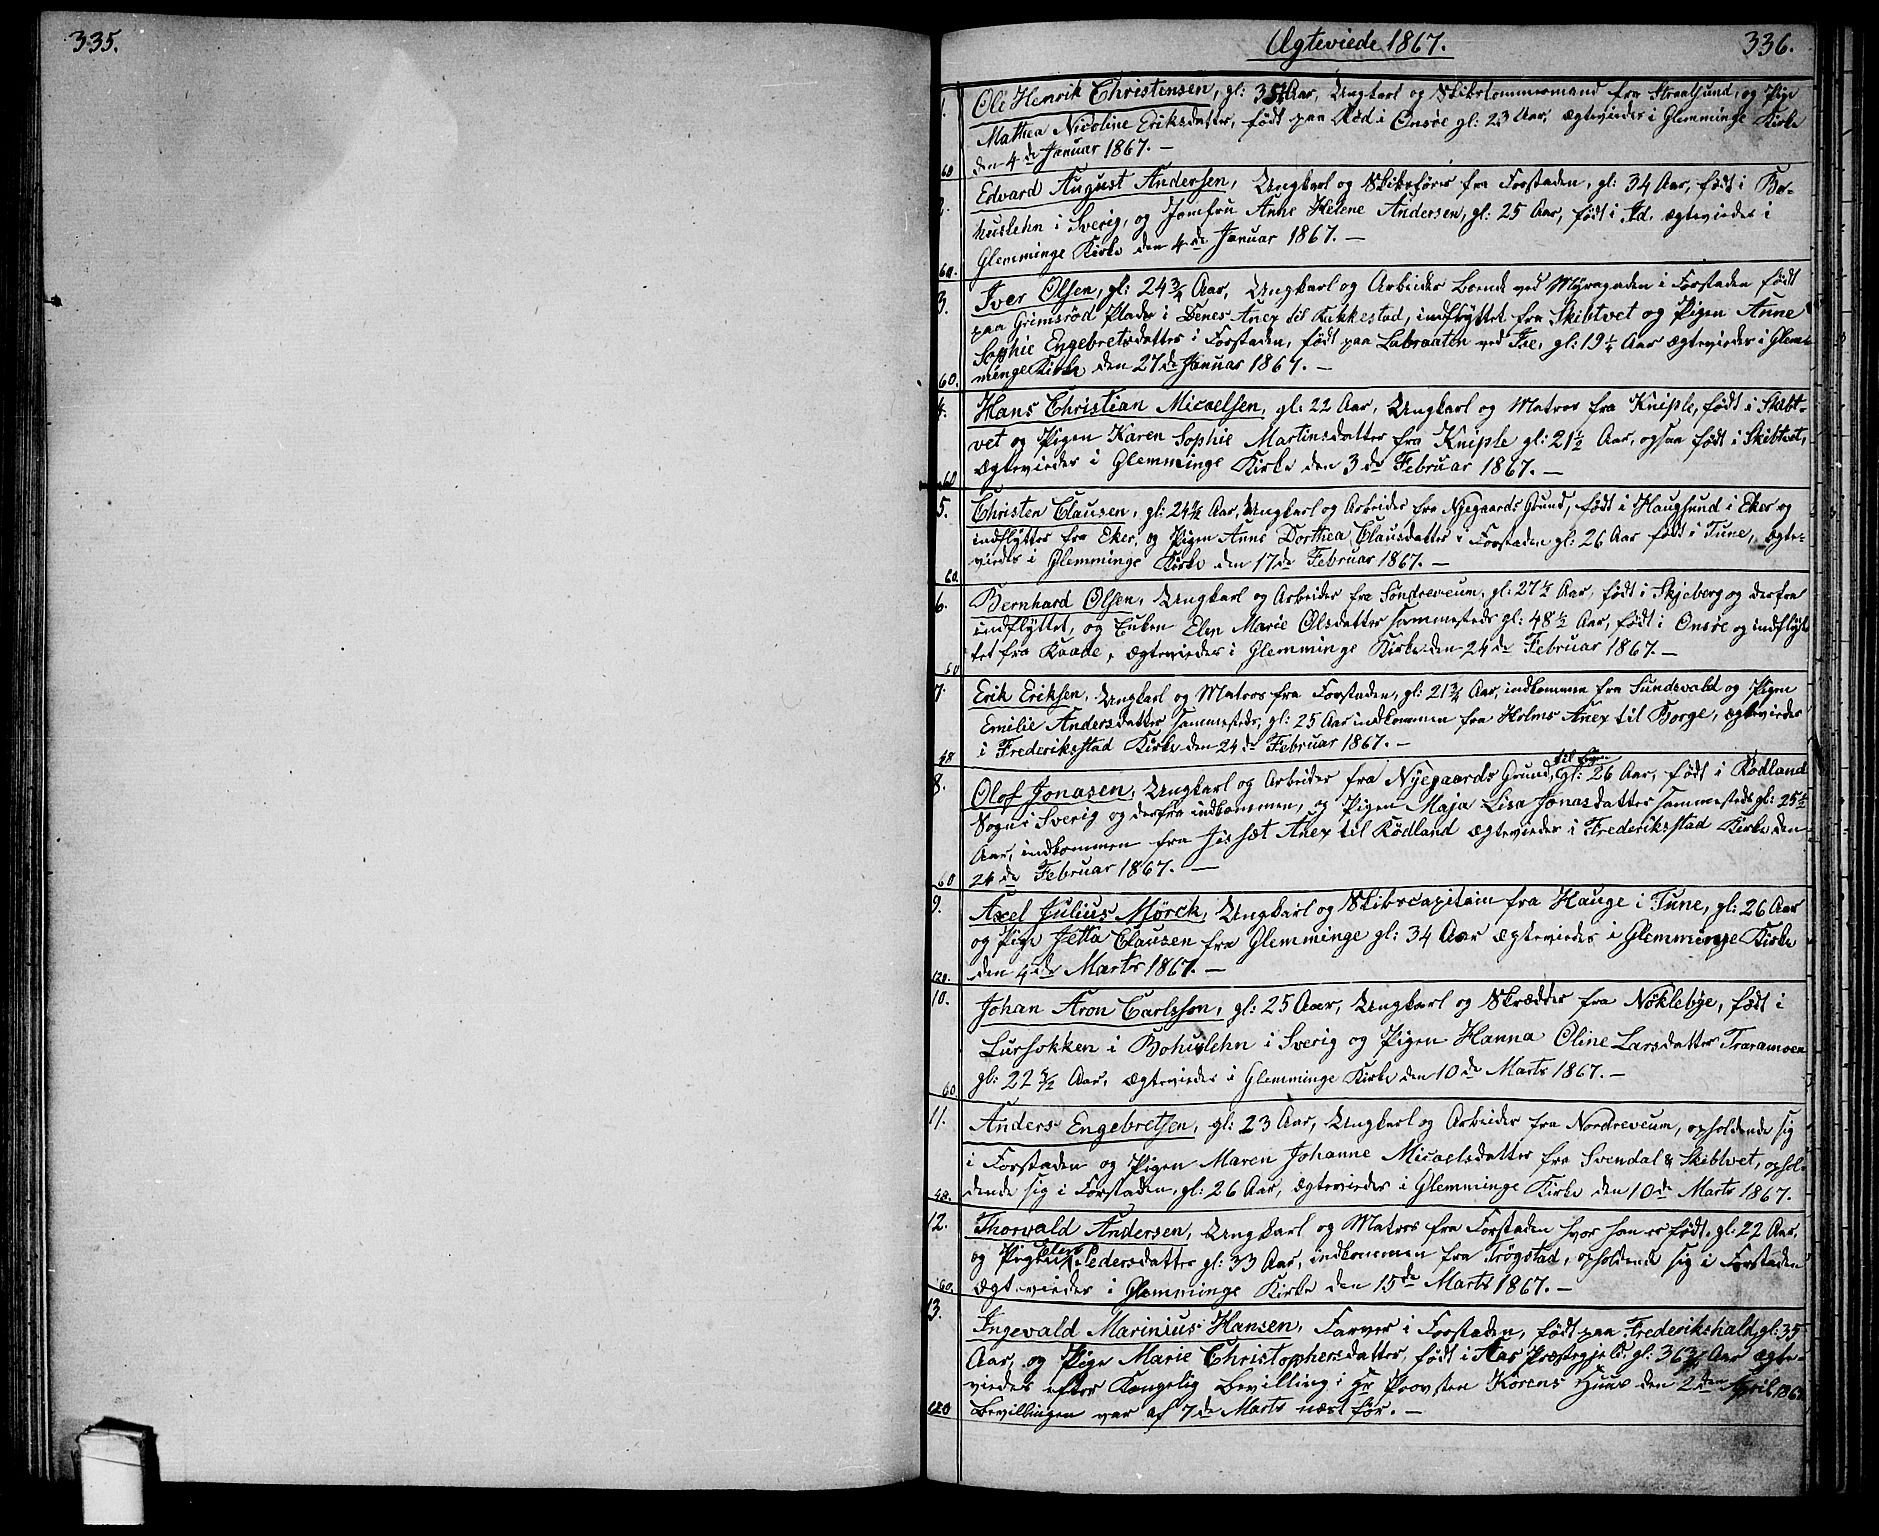 335.
Ægteviede 1867.
336.
1.
Ole Henrik Christensen, gl: 35 Aar, Ungkarl og Skibstømmermand fra Straalsund, og Pige
Mathea Nicoline Eriksdatter, født paa Rød i Onsøe gl: 23 Aar, ægteviedes i Glemminge Kirke
den 4de Januar 1867. —
60
2.
Edvard August Andersen, Ungkarl og Skibsfører fra Forstaden, gl: 34 Aar, født i Bo-
huslehn i Sverig, og Jomfru Anne Helene Andersen, gl: 25 Aar, født i Id. ægteviedes i
Glemminge Kirke den 4de Januar 1867. —
60.
3.
Iver Olsen, gl: 24 3/4 Aar, Ungkarl og Arbeider boende ved Myragaden i Forstaden født
paa Grimsrød Plads i Denes Anex til Rakkestad, indflyttet fra Skibtvet og Pigen Anne
Sophie Engebretsdatter i Forstaden, født paa Labraaten ved Ise, gl: 19 1/4 Aar ægteviedes i Glem-
minge Kirke den 27de Januar 1867. —
60.
4.
Hans Christian Micaelsen, gl: 22 Aar, Ungkarl og Matros fra Kniple, født i Skibt-
vet og Pigen Karen Sophie Martinsdatter fra Kniple gl: 21 1/2 Aar, ogsaa født i Skibtvet,
ægteviedes i Glemminge Kirke den 3de Februar 1867. —
60
5.
Christen Clausen, gl: 24 1/2 Aar, Ungkarl og Arbeider fra Nyegaards Grund, født i Haugsund i Eker og
indflyttet fra Eker, og Pigen Anne Dorthea Clausdatter i Forstaden gl: 26 Aar født i Tune, ægte-
viedes i Glemminge Kirke den 17de Februar 1867. —
60.
6.
Bernhard Olsen, Ungkarl og Arbeider fra Søndreveum, gl: 27 1/2 Aar, født i Skjeberg og derfra
indflyttet, og Enken Elen Marie Olsdatter sammesteds gl: 48 1/2 Aar, født i Onsøe og indflyt
tet fra Raade, ægteviedes i Glemminge Kirke den 24de Februar 1867. —
60
7.
Erik Eriksen, Ungkarl og Matros fra Forstaden, gl: 21 3/4 Aar, indkommen fra Sundsvald og Pigen
Emilie Andersdatter sammesteds, gl: 25 Aar indkommen fra Holms Anex til Borge, ægteviedes
i Frederiksstad Kirke den 24de Februar 1867. —
48
8.
Olof Jonasen, Ungkarl og Arbeider fra Nyegaards Grund, gl: 26 Aar, født i Rødland
Sogn i Sverig og derfra indkommen, og Pigen Maja Lisa Jonasdatter sammesteds gl: 25 1/2
Aar, indkommen fra Anex til Rødland ægteviedes i Frederiksstad Kirke den
24de Februar 1867. —
60
9.
Axel Julius Mørck, Ungkarl og Skibscapitain fra Hauge i Tune, gl: 26 Aar
og Pige Jetta Clausen fra Glemminge gl: 34 Aar ægteviedes i Glemminge Kirke
den 4de Marts 1867. —
120.
10.
Johan Aron Carlsson, gl: 25 Aar, Ungkarl og Skrædder fra Nøklebye, født i
Lursokken i Bohuslehn i Sverig og Pigen Hanna Oline Larsdatter Traramoen
gl: 22 1/2 Aar, ægteviedes i Glemminge Kirke den 10de Marts 1867. —
60
11.
Anders Engebretsen, gl: 23 Aar, Ungkarl og Arbeider fra Nordreveum, opholdende sig
i Forstaden og Pigen Maren Johanne Micaelsdatter fra Svendal & Skibtvet, ophol-
dende sig i Forstaden, gl: 26 Aar, ægteviedes i Glemminge Kirke den 10de Marts 1867.
48.
12.
Thorvald Andersen, Ungkarl og Matros fra Forstaden hvor han er født, gl: 22 Aar,
og Pigen Pedersdatter gl: 33 Aar, indkommen fra Trøgstad, opholdende sig i Forstaden
ægteviedes i Glemminge Kirke den 15de Marts 1867. —
60.
13.
Ingevald Marinius Hansen, Farver i Forstaden, født paa Frederikshald, gl: 35
Aar, og Pige Marie Christophersdatter, født i Aas Præstegjeld. gl: 36 3/4 Aar ægte-
viedes efter Kongelig Bevilling i Hr Provsten Korens Huus den 2den April 1867
Bevillingen var af 7de Marts næst før. —
120